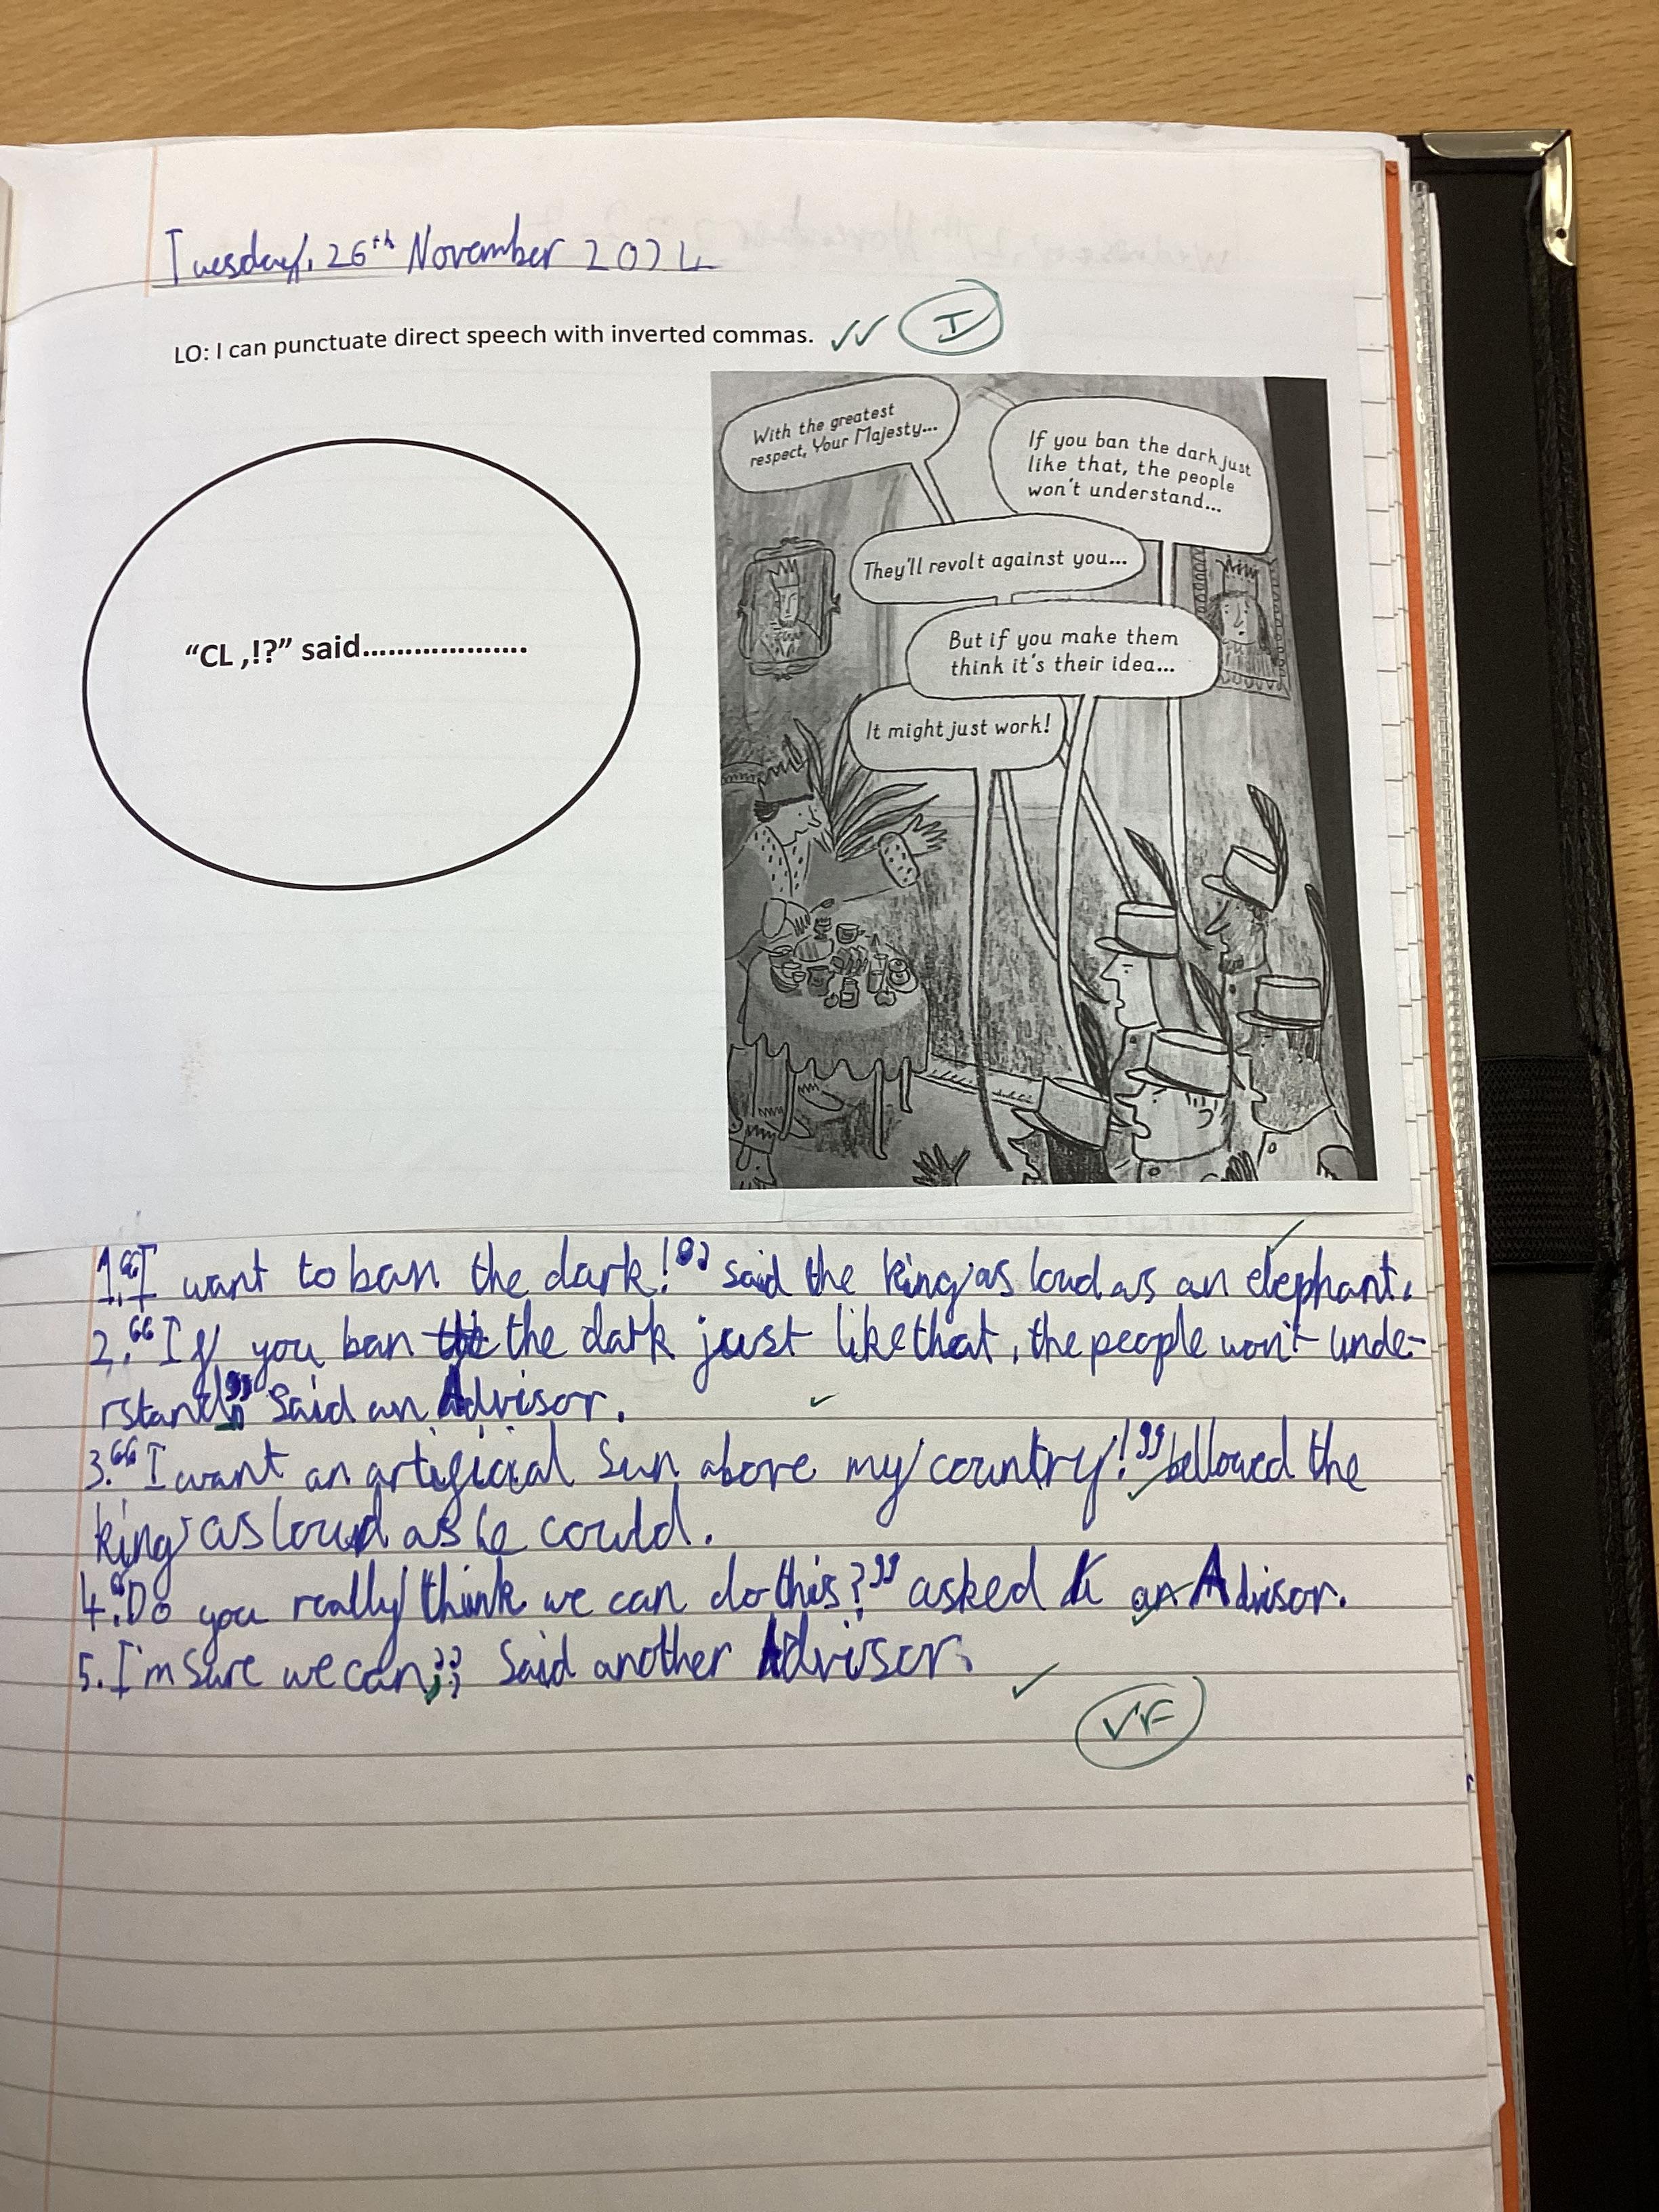 Tuesday, 26th November 2024
LO: I can punctuate direct speech with inverted commas. ✓✓ I
“CL ,!?” said....................
With the greatest
respect, Your Majesty...
If you ban the dark just
like that, the people
won't understand...
They'll revolt against you...
But if you make them
think it's their idea...
It might just work!
1.“I want to ban the dark!” said the king as loud as an elephant.
2.“If you ban the the dark just like that, the people won't unde-
rstand,” said an Advisor.
3.“I want an artificial sun above my country!” bellowed the
king as loud as he could.
4.“Do you really think we can do this?” asked an Advisor.
5. I'm sure we can,” said another Advisor.
VF